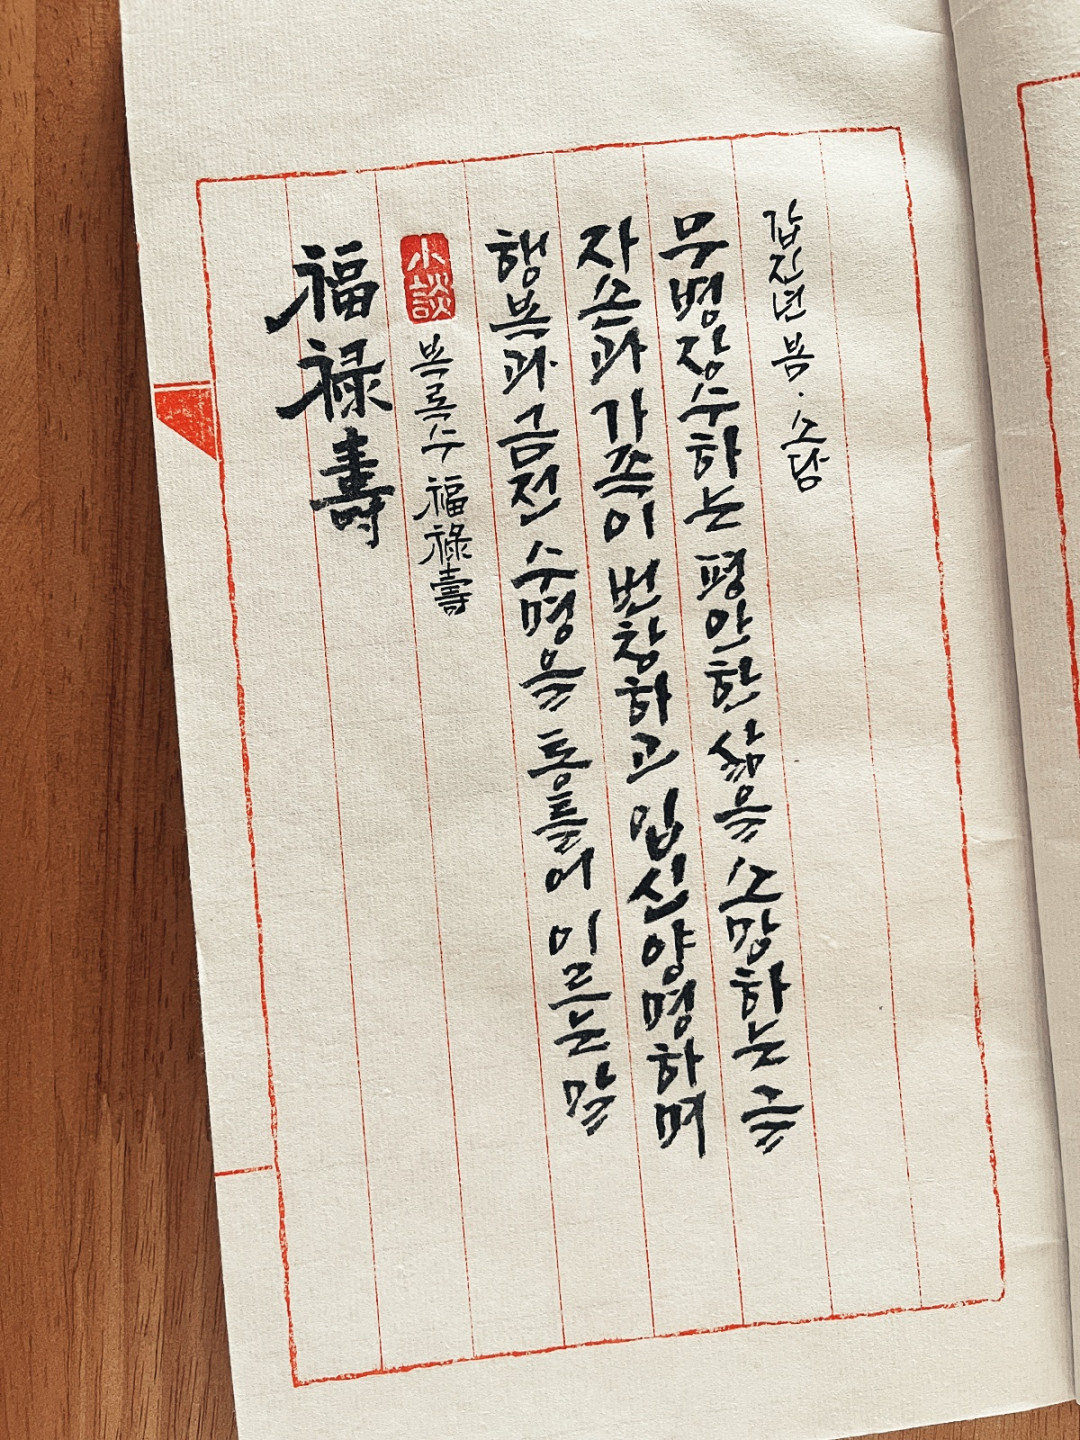 福禄壽
小談
복록수 福祿壽
행복과 금전 수명을 통틀어 이르는 말
자손과 가족이 번창하고 입신양명하며
무병장수하는 평안한 삶을 소망하는 글
갑진년 봄 · 소담